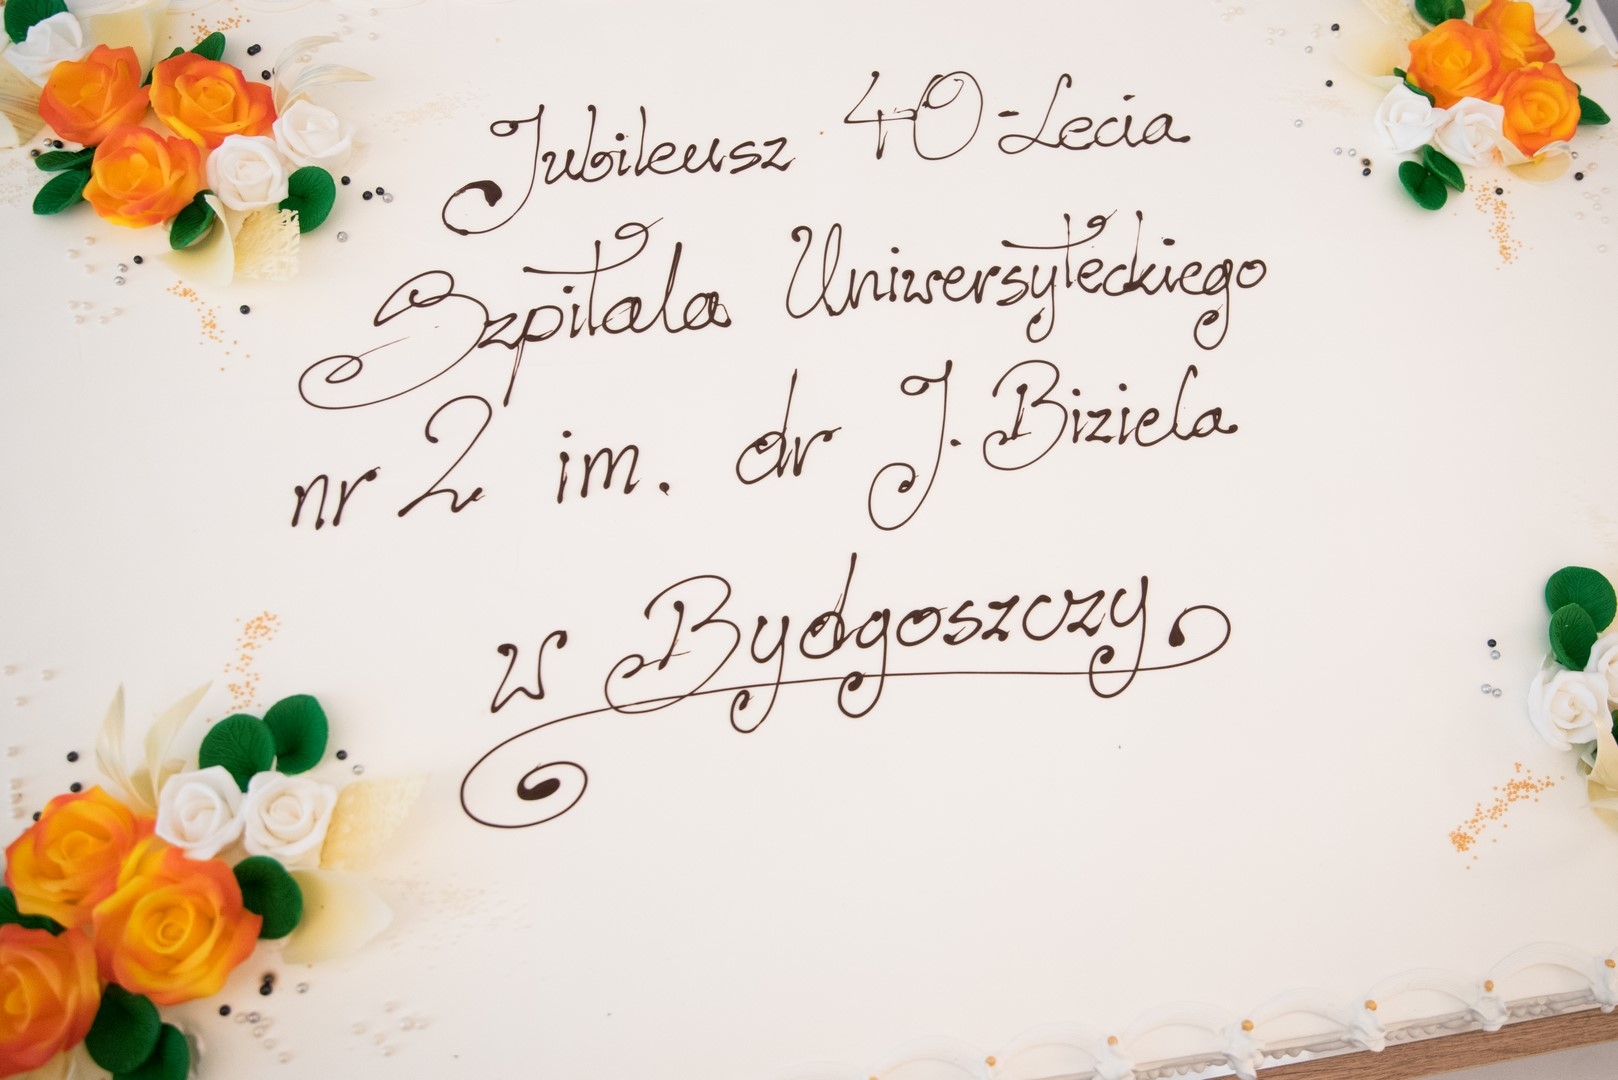 Jubileusz 40-Lecia
Szpitala Uniwersyteckiego
nr 2 im. dr J. Biziela
w Bydgoszczy